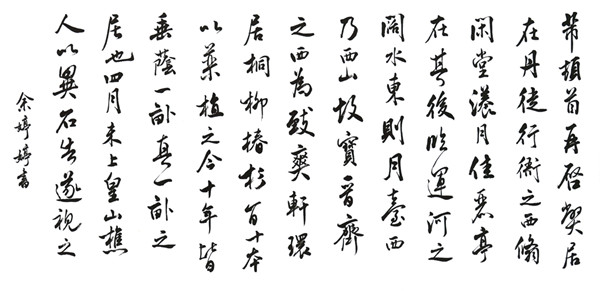 芾頓首再啓弊居
在丹徒行衙之西翛
閑堂漾月佳麗亭
在其後臨運河之
闊水東則月臺西
乃西山故寶晉齋
之西為致爽軒環
居桐柳椿杉百十本
以藥植之今十年皆
垂蔭一畝真一畝之
居也四月末上皇山樵
人以異石告遂視之
余婷婷書